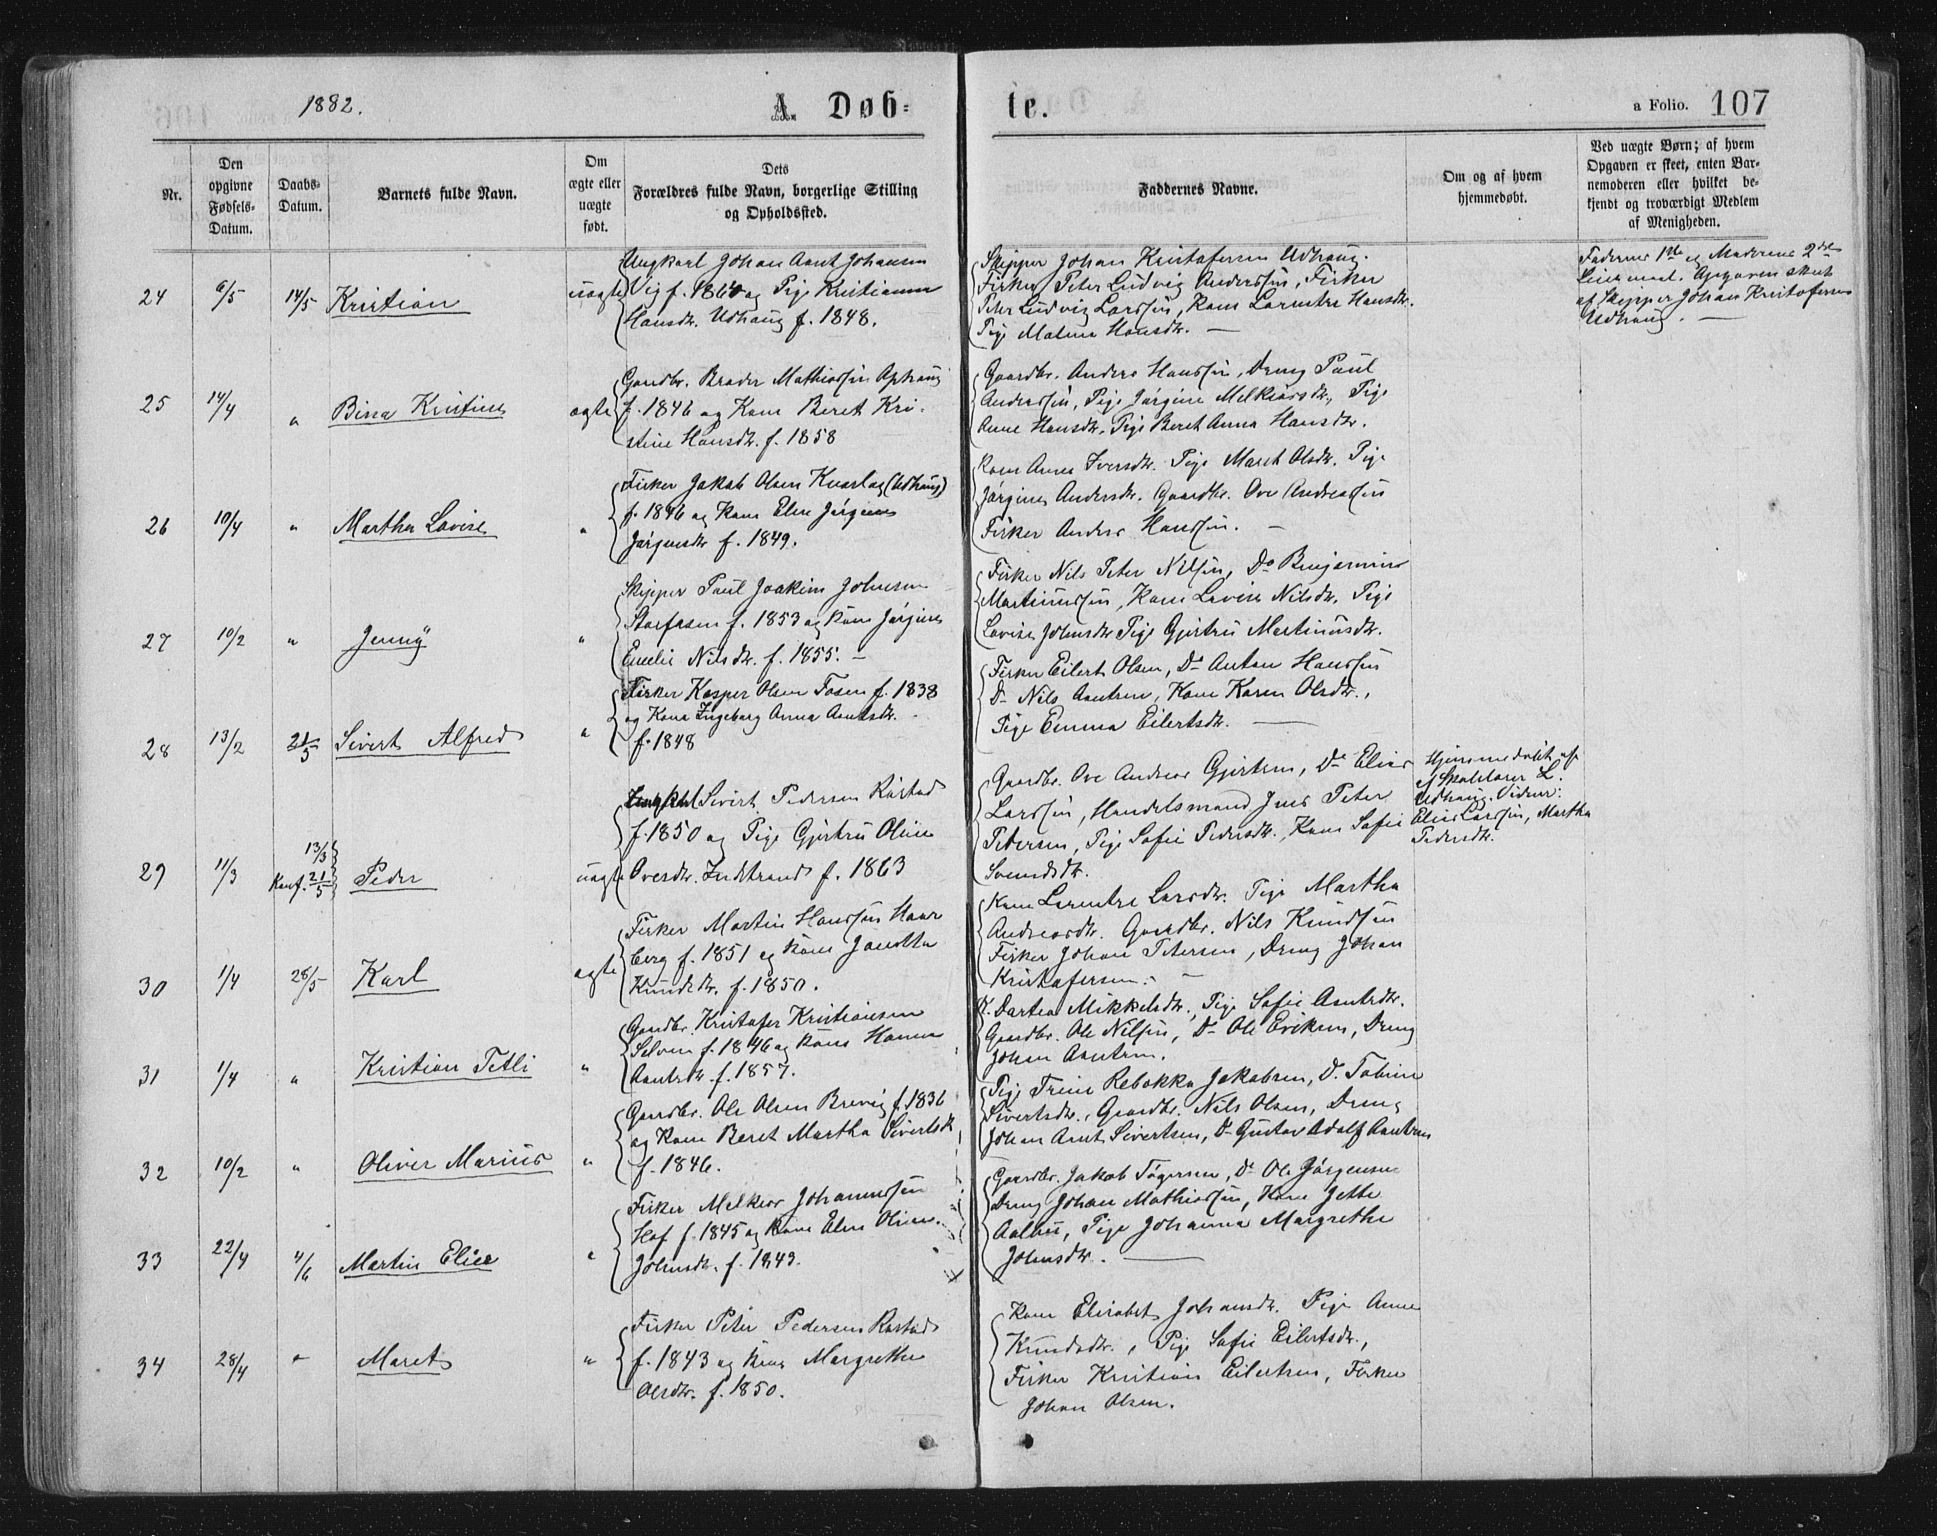 1882.
A. Døb-
te.
a Folio. 107
Nr.
Den opgivne Fødsels-Datum.
Daabs-Datum.
Barnets fulde Navn.
Om ægte eller uægte født.
Dets Forældres fulde Navn, borgerlige Stilling og Opholdssted.
Faddernes Navne.
Om og af hvem hjemmedøbt.
Ved uægte Børn; af hvem Opgaven er skeet, enten Barnemoderen eller hvilket bekjendt og troværdigt Medlem af Menigheden.
24 6/5 14/5 Kristian uægte
Ungkarl Johan Arnt Johansen
Vig f. 1860 og Pige Kristianna
Hansdtr. Udhaug f. 1848.
Skipper Johan Kristofersen Udhaug.
Fisker Peter Ludvig Anderssøn, Fisker
Peter Ludvig Larssøn, Kone Larentse Hansdtr.
Pige Malena Hansdtr. —
Faderens 1ste og Moderens 2det
Leiermaal. Opgaven skeet
af Skipper Johan Kristofersen
Udhaug. —
25 14/4 " Bina Kristine ægte
Gaardbr. Brader Mathiassøn Ophaug
f. 1846 og Kone Beret Kri-
stine Hansdtr. f. 1858
Gaardbr. Anders Hanssøn, Dreng Paul
Anderssøn, Pige Jørgine Melkiorsdtr., Pige
Anne Hansdtr. Pige Beret Anna Hansdtr.
26 10/4 " Martha Lovise "
Fisker Jakob Olsen (Udhaug)
f. 1846 og Kone Elen Jørgine
Jørgensdtr f. 1849.
Kone Anne Iversdtr. Pige Maret Olsdtr. Pige
Jørgine Andersdtr. Gaardbr. Ove Andreassøn
Fisker Anders Hanssøn. —
27 10/2 " Jenny "
Skipper Paul Joakim Johnsen
Storfosen f. 1853 og Kone Jørgine
Emelie Nilsdtr. f. 1855. —
Fisker Nils Peter Nilssøn, Do Benjamin
Martinussøn, Kone Lovise Nilsdtr. Pige
Lovise Johnsdtr Pige Gjertru Martinusdtr.
28 13/2 21/5 Sivert Alfred "
Fisker Kasper Olsen Fosen f. 1838
og Kone Ingeborg Anna Arntsdtr.
f. 1848
Fisker Eilert Olsen, Do Anton Hanssøn
Do Nils Arntsen, Kone Karen Olsdtr.,
Pige Emma Eilertsdtr. —
29 11/3 13/3 Konf. 21/5 Peder uægte
Ungkarl Sivert Pedersen Rostad
f. 1850 og Pige Gjertru Oline
Ovesdtr. Indstrand f. 1863
Gaardbr. Ove Andreas Gjertsen, Do Elias
Larssøn, Handelsmand Jens Peter
Petersen, Pige Sofie Pedersdtr., Kone Sofie
Svendsdtr.
Hjemmedøbt af
Skolelærer L.
Udhaug. Vidner:
Elias Larssøn, Martha
Pedersdtr.
30 1/4 28/5 Karl ægte
Fisker Martin Hanssøn Haar
berg f. 1851 og Kone Janetta
Knudsdtr. f. 1850.
Kone Larentse Larsdtr. Pige Martha
Andreasdtr. Gaardbr. Nils Knudssøn
Fisker Johan Petersen, Dreng Johan
Kristofersen. —
31 1/4 " Kristian Petli "
Gaardbr. Kristofer Kristiansen
Selven f. 1846 og Kone Hanna
Arntsdtr. f. 1857.
K. Dortea Mikkelsdtr., Pige Sofie Arntsdtr.
Gaardbr. Ole Nilssøn, Do Ole Eriksen, Dreng
Johan Arntsen.
32 10/2 " Oliver Marius "
Gaardbr. Ole Olsen Brevig f. 1836
og Kone Beret Martha Sivertsdtr
f. 1846.
Pige Trine Rebekka Jakobsen, D. Tobine
Sivertsdtr., Gaardbr. Nils Olsen, Dreng
Johan Arnt Sivertsen, Do Gustav Adolf Arntsen
33 22/4 4/6 Martin Elias "
Fisker Melkior Johannessøn
Hof f. 1845 og Kone Elen Olina
Johnsdtr. f. 1843.
Gaardbr. Jakob Tøgersen, Do Ole Jørgensen
Dreng Johan Mathiassøn, Kone Jette
Aalbu, Pige Johanna Margrethe
Johnsdtr. —
34 28/4 " Maret "
Fisker Peter Pedersen Rostad
f. 1843 og Kone Margrethe
Olsdtr. f. 1850.
Kone Elisabet Johansdtr. Pige Anne
Knudsdtr., Pige Sofie Eilertsdtr.,
Fisker Kristian Eilertsen, Fisker
Johan Olsen.